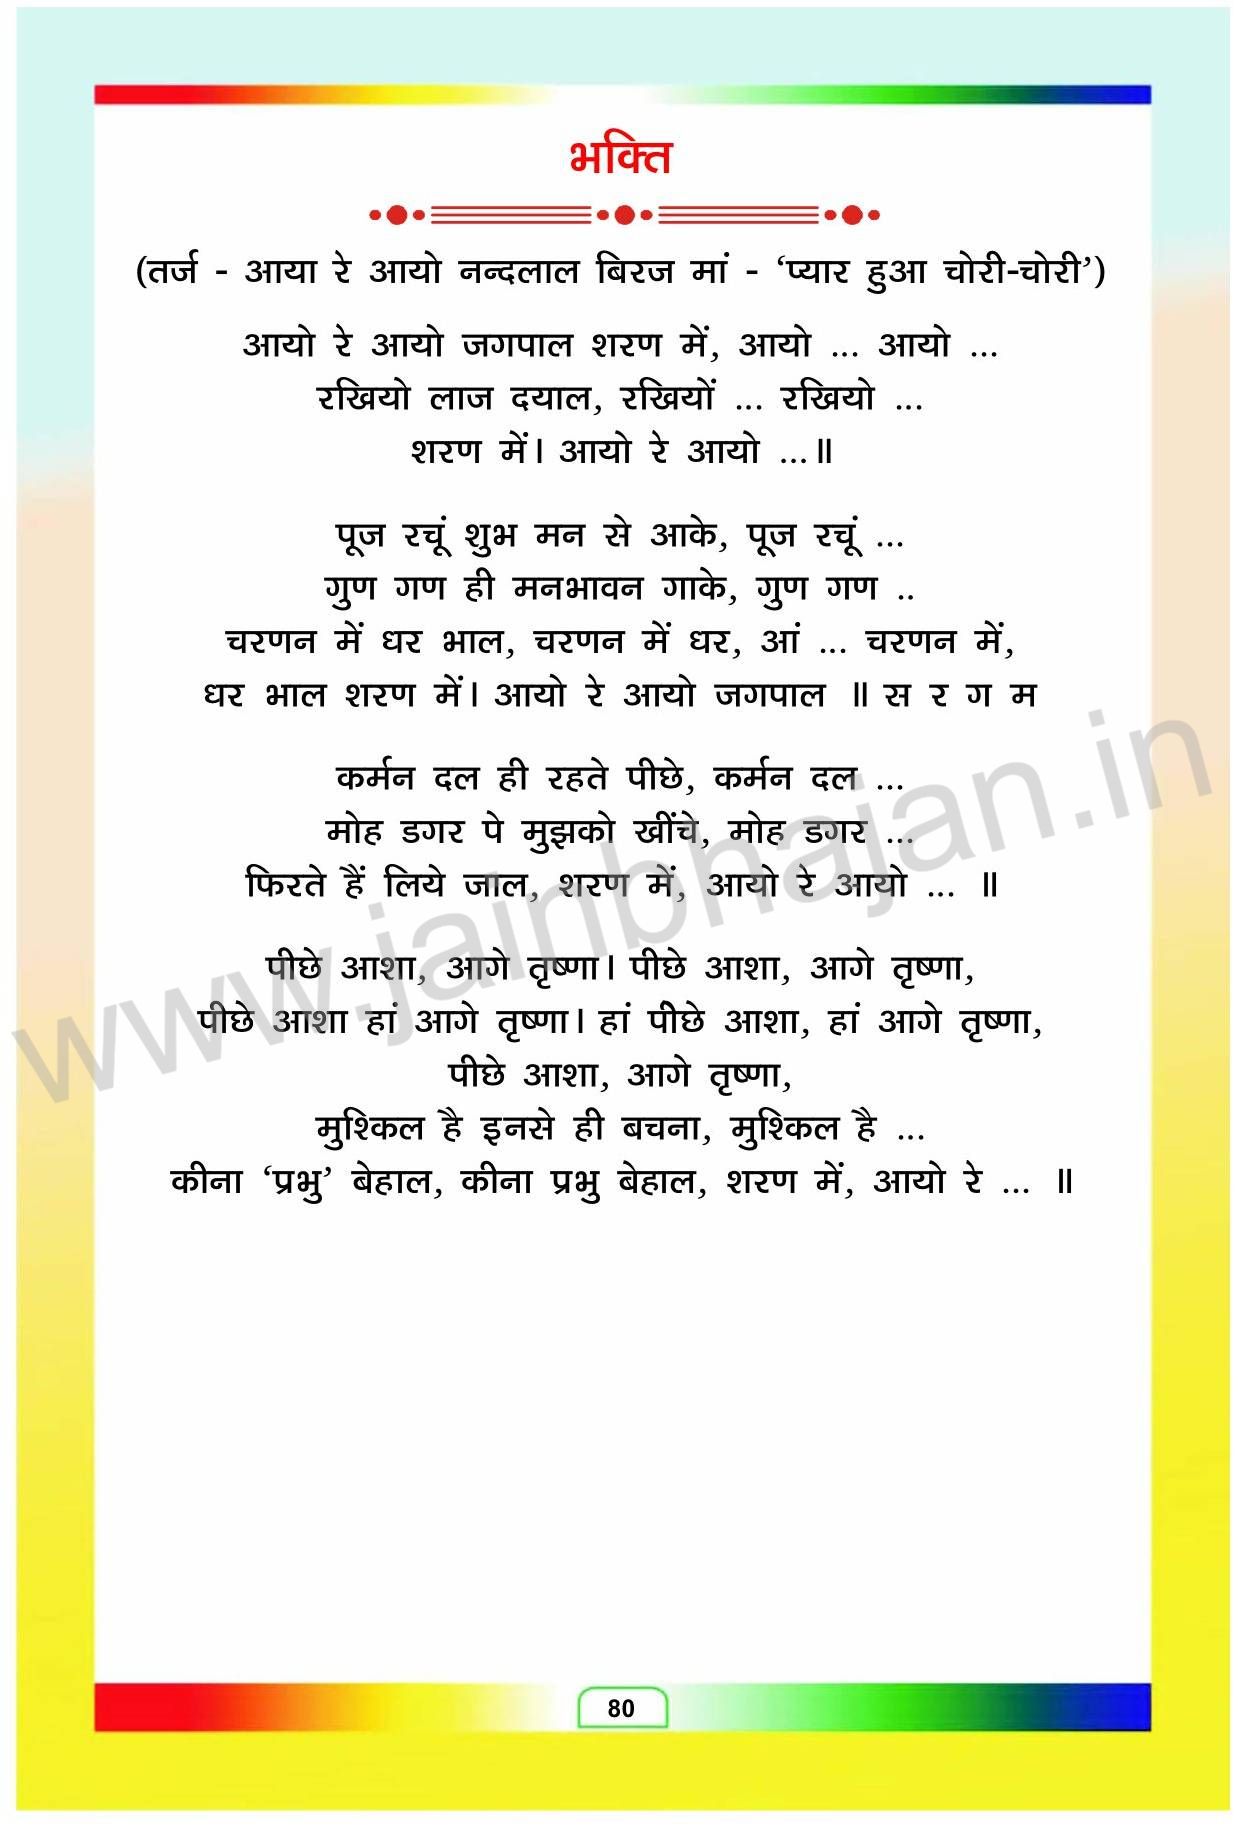 भक्ति
(तर्ज - आया रे आयो नन्दलाल बिरज मां - ‘प्यार हुआ चोरी-चोरी’)
आयो रे आयो जगपाल शरण में, आयो ... आयो ...
रखियो लाज दयाल, रखियों ... रखियो ...
शरण में। आयो रे आयो ...॥
पूज रचूं शुभ मन से आके, पूज रचूं ...
गुण गण ही मनभावन गाके, गुण गण ..
चरणन में धर भाल, चरणन में धर, आं ... चरणन में,
धर भाल शरण में। आयो रे आयो जगपाल ॥ स र ग म
कर्मन दल ही रहते पीछे, कर्मन दल ...
मोह डगर पे मुझको खींचे, मोह डगर ...
फिरते हैं लिये जाल, शरण में, आयो रे आयो ... ॥
पीछे आशा, आगे तृष्णा। पीछे आशा, आगे तृष्णा,
पीछे आशा हां आगे तृष्णा। हां पीछे आशा, हां आगे तृष्णा,
पीछे आशा, आगे तृष्णा,
मुश्किल है इनसे ही बचना, मुश्किल है ...
कीना ‘प्रभु’ बेहाल, कीना प्रभु बेहाल, शरण में, आयो रे ... ॥
www.jainbhajan.in
80